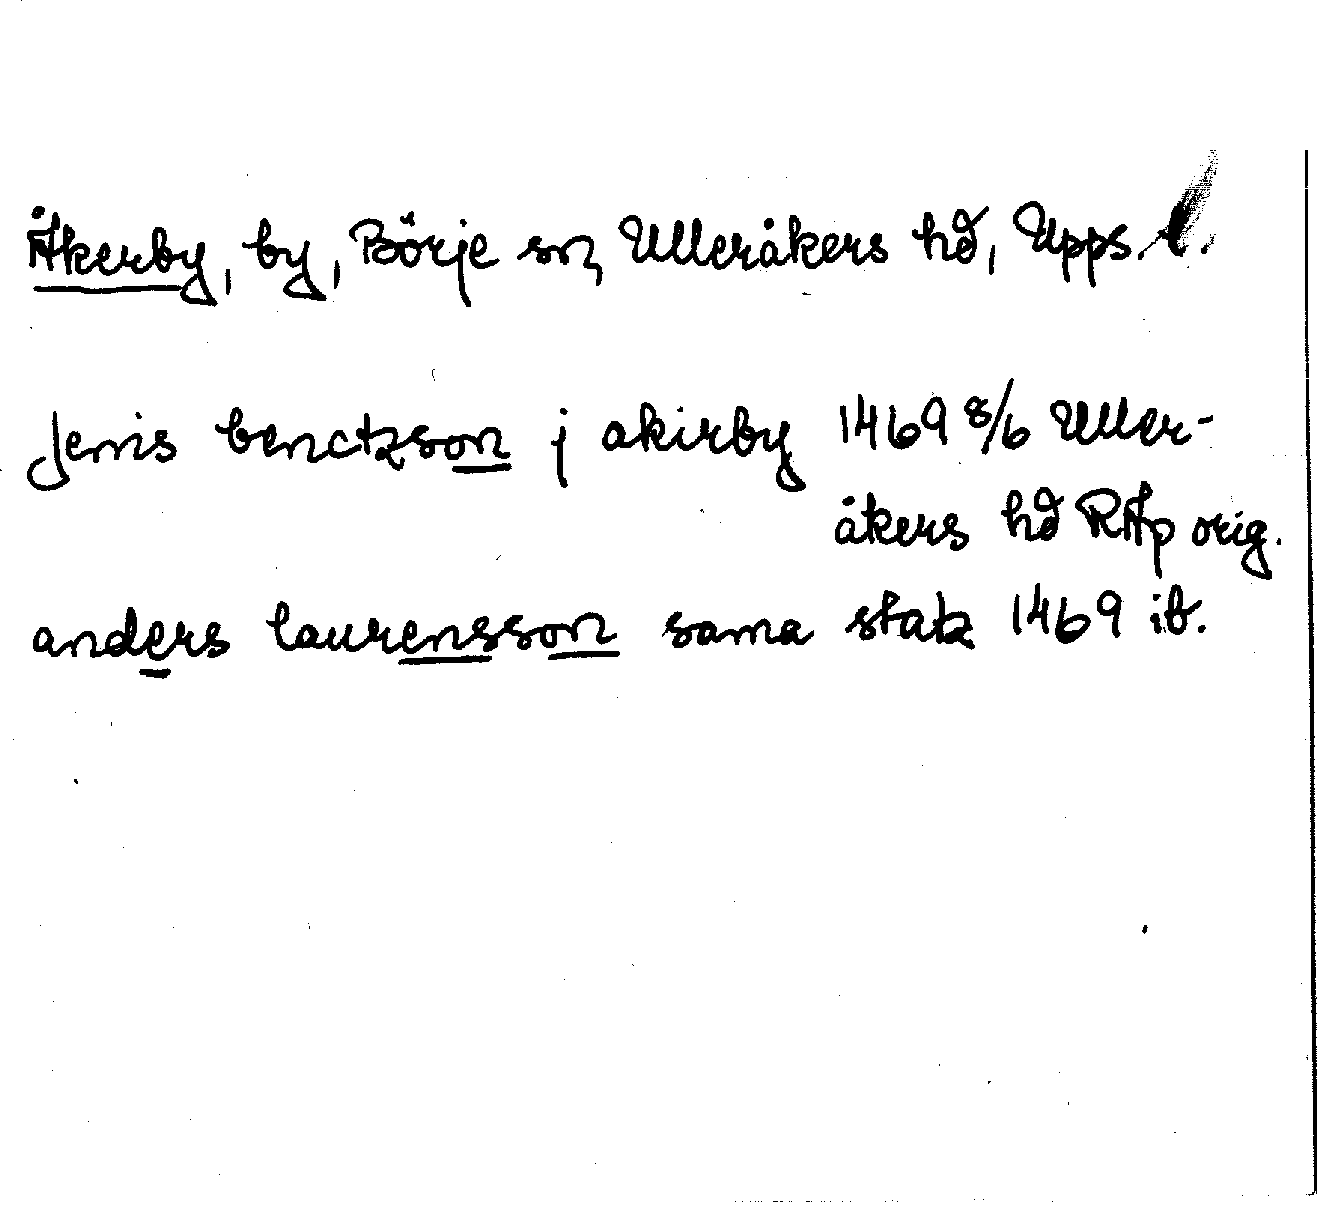 Åkerby, by, Börje sn, Ulleråkers hd, Upps. l.
Jenis benctzson j akirby 1469 8/6 Uller-
åkers hd RAp orig.
anders laurensson sama stadz 1469 ib.